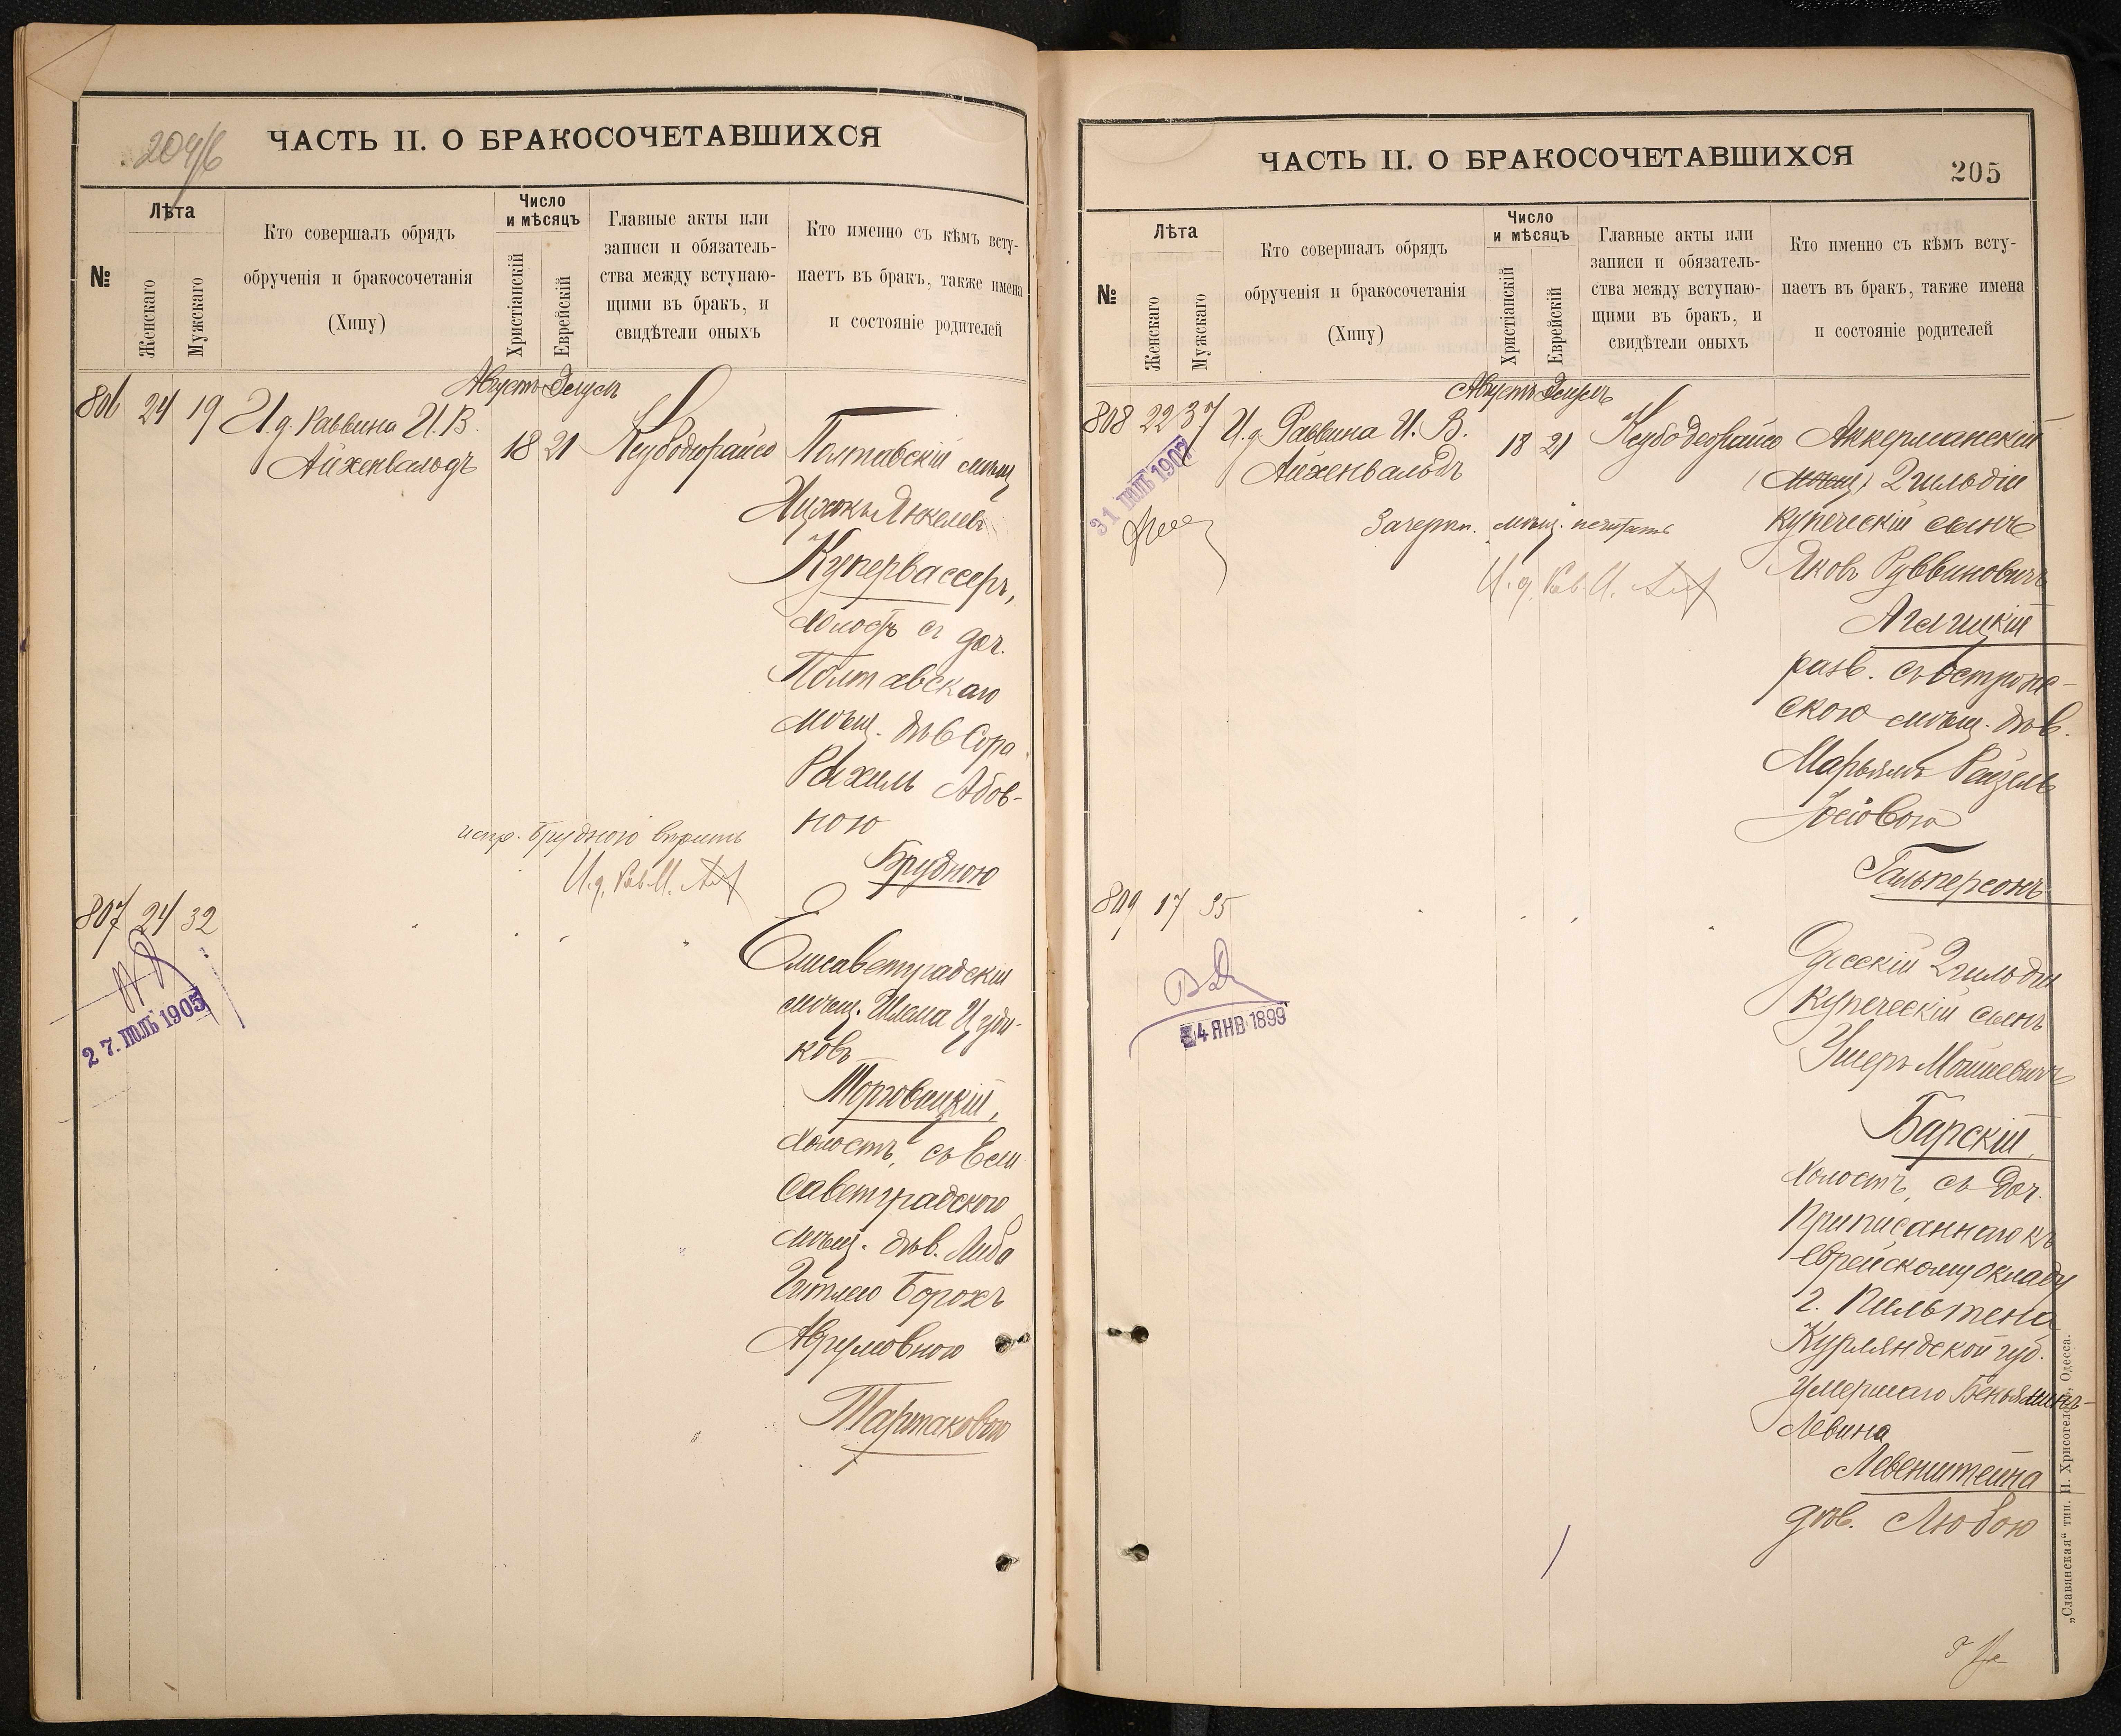 204/б
ЧАСТЬ II. О БРАКОСОЧЕТАВШИХСЯ
№
Лѣта
Женскаго
Мужскаго
Кто совершалъ обрядъ
обрученія и бракосочетанія
(Хипу)
Число
и мѣсяцъ
Христіанскій
Еврейскій
Главные акты или
записи и обязатель-
ства между вступаю-
щими въ бракъ, и
свидѣтели оныхъ
Кто именно съ кѣмъ всту-
паетъ въ бракъ, также имена
и состояніе родителей
Августъ Элулъ
806 24 19 И. д. Раввина И. В.
Айхенвальдъ
18 21
Полтавскій мѣщ
Ицхокъ Янкелевъ
Купервассеръ,
холостъ съ доч.
Полтавскаго
мѣщ. дѣв Сора
Рахиль Абов-
ною
испр. Брудною вѣрить
И. д. Рав. И. Айх
Брудною
807 24 32
Елисаветградскій
мѣщ. Шлема Цуди-
ковъ
Торговицкій,
холостъ, съ Ели
саветградскою
мѣщ. дѣв. Либа
Гитлею Борохъ
Аврумовною
Тартаковою
27. ІЮЛЬ 1905
ЧАСТЬ II. О БРАКОСОЧЕТАВШИХСЯ
205
№
Лѣта
Женскаго
Мужскаго
Кто совершалъ обрядъ
обрученія и бракосочетанія
(Хипу)
Число
и мѣсяцъ
Христіанскій
Еврейскій
Главные акты или
записи и обязатель-
ства между вступаю-
щими въ бракъ, и
свидѣтели оныхъ
Кто именно съ кѣмъ всту-
паетъ въ бракъ, также имена
и состояніе родителей
Августъ Элулъ
808 22 37 И. д. Раввина И. В.
Айхенвальдъ
18 21
Аккерманскій
(мѣщ) 2 гильдіи
купеческій сынъ
Яковъ Руввиновичъ
разв. съ Острож-
скою мѣщ. дѣв.
Марьямъ Рейзель
Іосіовою
Гальперсонъ
31 ІЮЛЬ
Зачеркн. мѣщ. не читать
И. д. Рав. И. Айх
809 17 35
Одесскій 2 гильдіи
купеческій сынъ
Ушеръ Мошкевичъ
Барскій,
холостъ, съ доч.
Приписаннаго къ
еврейскому окладу
г. Пильтена
Курляндской губ.
умершаго Беньяминъ-
Левина
Левенштейна
дѣв. Любою
4 ЯНВ 1899
„Славянская“ тип. Н. Хрисогелосъ, Одесса.